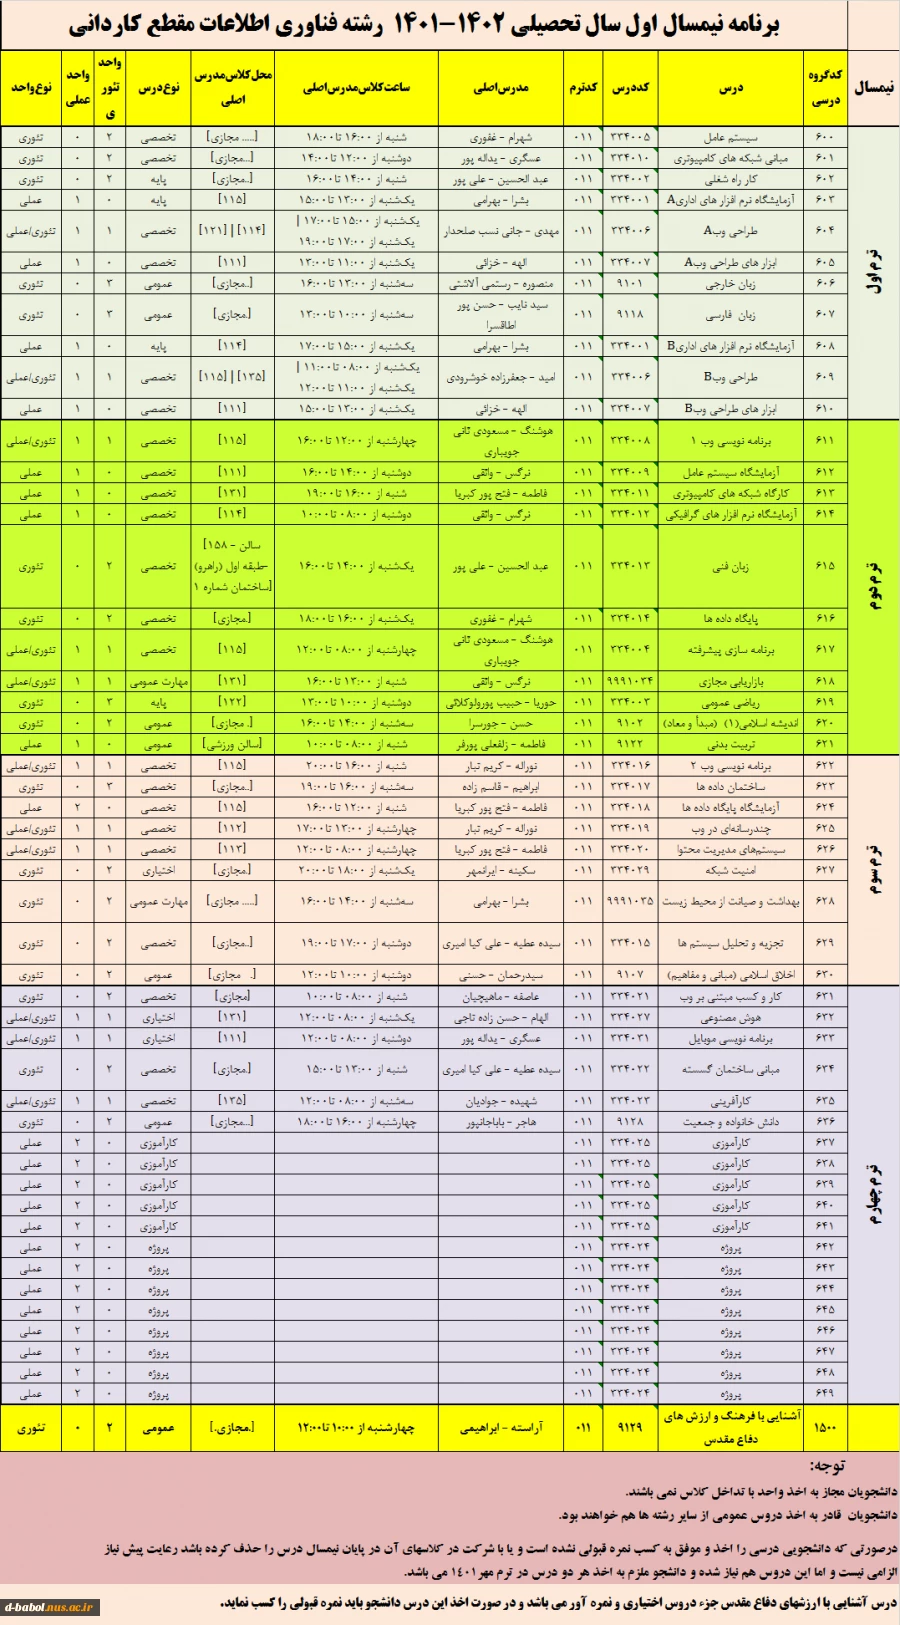 برنامه نیمسال اول سال تحصیلی ۱۴۰۲-۱۴۰۱ رشته فناوری اطلاعات مقطع کاردانی
نیمسال	کدگروه درسی	درس	کددرس	کدترم	مدرس‌اصلی	ساعت‌کلاس‌مدرس‌اصلی	محل‌کلاس‌مدرس اصلی	نوع‌درس	واحد تئوری	واحد عملی	نوع‌واحد
ترم اول
۶۰۰	سیستم عامل	۳۳۴۰۰۵	۰۱۱	شهرام - غفوری	شنبه از ۱۶:۰۰ تا ۱۸:۰۰	[..... مجازی]	تخصصی	۲	۰	تئوری
۶۰۱	مبانی شبکه های کامپیوتری	۳۳۴۰۱۰	۰۱۱	عسگری - یداله پور	دوشنبه از ۱۲:۰۰ تا ۱۴:۰۰	[...مجازی]	تخصصی	۲	۰	تئوری
۶۰۲	کار راه شغلی	۳۳۴۰۰۲	۰۱۱	عبد الحسین - علی پور	شنبه از ۱۴:۰۰ تا ۱۶:۰۰	[..مجازی]	پایه	۲	۰	تئوری
۶۰۳	آزمایشگاه نرم افزار های اداریA	۳۳۴۰۰۱	۰۱۱	بشرا - بهرامی	یک‌شنبه از ۱۳:۰۰ تا ۱۵:۰۰	[۱۱۵]	پایه	۰	۱	عملی
۶۰۴	طراحی وبA	۳۳۴۰۰۶	۰۱۱	مهدی - جانی نسب صلحدار	یک‌شنبه از ۱۵:۰۰ تا ۱۷:۰۰ | یک‌شنبه از ۱۷:۰۰ تا ۱۹:۰۰	[۱۱۴] | [۱۲۱]	تخصصی	۱	۱	تئوری/عملی
۶۰۵	ابزار های طراحی وبA	۳۳۴۰۰۷	۰۱۱	الهه - خزائی	یک‌شنبه از ۱۱:۰۰ تا ۱۳:۰۰	[۱۱۱]	تخصصی	۰	۱	عملی
۶۰۶	زبان خارجی	۹۱۰۱	۰۱۱	منصوره - رستمی آلاشتی	سه‌شنبه از ۱۳:۰۰ تا ۱۶:۰۰	[..مجازی]	عمومی	۳	۰	تئوری
۶۰۷	زبان فارسی	۹۱۱۸	۰۱۱	سید نایب - حسن پور اطاقسرا	سه‌شنبه از ۱۰:۰۰ تا ۱۳:۰۰	[.مجازی]	عمومی	۳	۰	تئوری
۶۰۸	آزمایشگاه نرم افزار های اداریB	۳۳۴۰۰۱	۰۱۱	بشرا - بهرامی	یک‌شنبه از ۱۵:۰۰ تا ۱۷:۰۰	[۱۱۴]	پایه	۰	۱	عملی
۶۰۹	طراحی وبB	۳۳۴۰۰۶	۰۱۱	امید - جعفرزاده خوشرودی	یک‌شنبه از ۰۸:۰۰ تا ۱۱:۰۰ | یک‌شنبه از ۱۱:۰۰ تا ۱۲:۰۰	[۱۳۵] | [۱۱۵]	تخصصی	۱	۱	تئوری/عملی
۶۱۰	ابزار های طراحی وبB	۳۳۴۰۰۷	۰۱۱	الهه - خزائی	یک‌شنبه از ۱۳:۰۰ تا ۱۵:۰۰	[۱۱۱]	تخصصی	۰	۱	عملی
ترم دوم
۶۱۱	برنامه نویسی وب ۱	۳۳۴۰۰۸	۰۱۱	هوشنگ - مسعودی ثانی جویباری	چهارشنبه از ۱۲:۰۰ تا ۱۶:۰۰	[۱۱۵]	تخصصی	۱	۱	تئوری/عملی
۶۱۲	آزمایشگاه سیستم عامل	۳۳۴۰۰۹	۰۱۱	نرگس - واثقی	دوشنبه از ۱۴:۰۰ تا ۱۶:۰۰	[۱۱۱]	تخصصی	۰	۱	عملی
۶۱۳	کارگاه شبکه های کامپیوتری	۳۳۴۰۱۱	۰۱۱	فاطمه - فتح پور کبریا	شنبه از ۱۶:۰۰ تا ۱۹:۰۰	[۱۳۱]	تخصصی	۰	۱	عملی
۶۱۴	آزمایشگاه نرم افزار های گرافیکی	۳۳۴۰۱۲	۰۱۱	نرگس - واثقی	دوشنبه از ۰۸:۰۰ تا ۱۰:۰۰	[۱۱۴]	تخصصی	۰	۱	عملی
۶۱۵	زبان فنی	۳۳۴۰۱۳	۰۱۱	عبد الحسین - علی پور	یک‌شنبه از ۱۴:۰۰ تا ۱۶:۰۰	[۱۵۸ - سالن طبقه اول (راهرو)- ساختمان شماره ۱]	تخصصی	۲	۰	تئوری
۶۱۶	پایگاه داده ها	۳۳۴۰۱۴	۰۱۱	شهرام - غفوری	یک‌شنبه از ۱۶:۰۰ تا ۱۸:۰۰	[.مجازی]	تخصصی	۲	۰	تئوری
۶۱۷	برنامه سازی پیشرفته	۳۳۴۰۰۴	۰۱۱	هوشنگ - مسعودی ثانی جویباری	چهارشنبه از ۰۸:۰۰ تا ۱۲:۰۰	[۱۱۵]	تخصصی	۱	۱	تئوری/عملی
۶۱۸	بازاریابی مجازی	۹۹۹۱۰۳۴	۰۱۱	نرگس - واثقی	شنبه از ۱۳:۰۰ تا ۱۶:۰۰	[۱۳۱]	مهارت عمومی	۱	۱	تئوری/عملی
۶۱۹	ریاضی عمومی	۳۳۴۰۰۳	۰۱۱	حوریا - حبیب پورولوکلائی	دوشنبه از ۱۰:۰۰ تا ۱۳:۰۰	[۱۲۲]	پایه	۳	۰	تئوری
۶۲۰	اندیشه اسلامی(۱) (مبدأ و معاد)	۹۱۰۲	۰۱۱	حسن - جورسرا	سه‌شنبه از ۱۴:۰۰ تا ۱۶:۰۰	[. مجازی]	عمومی	۲	۰	تئوری
۶۲۱	تربیت بدنی	۹۱۲۲	۰۱۱	فاطمه - زلفعلی پورفر	شنبه از ۰۸:۰۰ تا ۱۰:۰۰	[سالن ورزشی]	عمومی	۰	۱	عملی
ترم سوم
۶۲۲	برنامه نویسی وب ۲	۳۳۴۰۱۶	۰۱۱	نوراله - کریم تبار	شنبه از ۱۶:۰۰ تا ۲۰:۰۰	[۱۱۵]	تخصصی	۱	۱	تئوری/عملی
۶۲۳	ساختمان داده ها	۳۳۴۰۱۷	۰۱۱	ابراهیم - قاسم زاده	سه‌شنبه از ۱۶:۰۰ تا ۱۹:۰۰	[..مجازی]	تخصصی	۳	۰	تئوری
۶۲۴	آزمایشگاه پایگاه داده ها	۳۳۴۰۱۸	۰۱۱	فاطمه - فتح پور کبریا	شنبه از ۱۲:۰۰ تا ۱۶:۰۰	[۱۱۵]	تخصصی	۰	۲	عملی
۶۲۵	چندرسانه‌ای در وب	۳۳۴۰۱۹	۰۱۱	نوراله - کریم تبار	چهارشنبه از ۱۳:۰۰ تا ۱۷:۰۰	[۱۱۲]	تخصصی	۱	۱	تئوری/عملی
۶۲۶	سیستم‌های مدیریت محتوا	۳۳۴۰۲۰	۰۱۱	فاطمه - فتح پور کبریا	چهارشنبه از ۰۸:۰۰ تا ۱۲:۰۰	[۱۱۳]	تخصصی	۱	۱	تئوری/عملی
۶۲۷	امنیت شبکه	۳۳۴۰۲۹	۰۱۱	سکینه - ایرانمهر	یک‌شنبه از ۱۸:۰۰ تا ۲۰:۰۰	[.مجازی]	اختیاری	۲	۰	تئوری
۶۲۸	بهداشت و صیانت از محیط زیست	۹۹۹۱۰۳۵	۰۱۱	بشرا - بهرامی	سه‌شنبه از ۱۴:۰۰ تا ۱۶:۰۰	[..... مجازی]	مهارت عمومی	۲	۰	تئوری
۶۲۹	تجزیه و تحلیل سیستم ها	۳۳۴۰۱۵	۰۱۱	سیده عطیه - علی کیا امیری	دوشنبه از ۱۷:۰۰ تا ۱۹:۰۰	[..مجازی]	تخصصی	۲	۰	تئوری
۶۳۰	اخلاق اسلامی (مبانی و مفاهیم)	۹۱۰۷	۰۱۱	سیدرحمان - حسنی	دوشنبه از ۱۰:۰۰ تا ۱۲:۰۰	[. مجازی]	عمومی	۲	۰	تئوری
ترم چهارم
۶۳۱	کار و کسب مبتنی بر وب	۳۳۴۰۲۱	۰۱۱	عاصفه - ماهیچیان	شنبه از ۰۸:۰۰ تا ۱۰:۰۰	[مجازی]	تخصصی	۲	۰	تئوری
۶۳۲	هوش مصنوعی	۳۳۴۰۲۷	۰۱۱	الهام - حسن زاده تاجی	یک‌شنبه از ۰۸:۰۰ تا ۱۲:۰۰	[۱۳۱]	اختیاری	۱	۱	تئوری/عملی
۶۳۳	برنامه نویسی موبایل	۳۳۴۰۳۱	۰۱۱	عسگری - یداله پور	دوشنبه از ۰۸:۰۰ تا ۱۲:۰۰	[۱۱۱]	اختیاری	۱	۱	تئوری/عملی
۶۳۴	مبانی ساختمان گسسته	۳۳۴۰۲۲	۰۱۱	سیده عطیه - علی کیا امیری	شنبه از ۱۳:۰۰ تا ۱۵:۰۰	[.مجازی]	تخصصی	۲	۰	تئوری
۶۳۵	کارآفرینی	۳۳۴۰۲۳	۰۱۱	شهیده - جوادیان	سه‌شنبه از ۰۸:۰۰ تا ۱۲:۰۰	[۱۳۵]	تخصصی	۱	۱	تئوری/عملی
۶۳۶	دانش خانواده و جمعیت	۹۱۲۸	۰۱۱	هاجر - باباجانپور	چهارشنبه از ۱۶:۰۰ تا ۱۸:۰۰	[...مجازی]	عمومی	۲	۰	تئوری
۶۳۷	کارآموزی	۳۳۴۰۲۵	۰۱۱	کارآموزی	۰	۲	عملی
۶۳۸	کارآموزی	۳۳۴۰۲۵	۰۱۱	کارآموزی	۰	۲	عملی
۶۳۹	کارآموزی	۳۳۴۰۲۵	۰۱۱	کارآموزی	۰	۲	عملی
۶۴۰	کارآموزی	۳۳۴۰۲۵	۰۱۱	کارآموزی	۰	۲	عملی
۶۴۱	کارآموزی	۳۳۴۰۲۵	۰۱۱	کارآموزی	۰	۲	عملی
۶۴۲	پروژه	۳۳۴۰۲۴	۰۱۱	پروژه	۰	۲	عملی
۶۴۳	پروژه	۳۳۴۰۲۴	۰۱۱	پروژه	۰	۲	عملی
۶۴۴	پروژه	۳۳۴۰۲۴	۰۱۱	پروژه	۰	۲	عملی
۶۴۵	پروژه	۳۳۴۰۲۴	۰۱۱	پروژه	۰	۲	عملی
۶۴۶	پروژه	۳۳۴۰۲۴	۰۱۱	پروژه	۰	۲	عملی
۶۴۷	پروژه	۳۳۴۰۲۴	۰۱۱	پروژه	۰	۲	عملی
۶۴۸	پروژه	۳۳۴۰۲۴	۰۱۱	پروژه	۰	۲	عملی
۶۴۹	پروژه	۳۳۴۰۲۴	۰۱۱	پروژه	۰	۲	عملی
۱۵۰۰	آشنایی با فرهنگ و ارزش های دفاع مقدس	۹۱۲۹	۰۱۱	آراسته - ابراهیمی	چهارشنبه از ۱۰:۰۰ تا ۱۲:۰۰	[.مجازی.]	عمومی	۲	۰	تئوری
توجه:
دانشجویان مجاز به اخذ واحد با تداخل کلاس نمی باشند.
دانشجویان قادر به اخذ دروس عمومی از سایر رشته ها هم خواهند بود.
درصورتی که دانشجویی درسی را اخذ و موفق به کسب نمره قبولی نشده است و یا با شرکت در کلاسهای آن در پایان نیمسال درس را حذف کرده باشد رعایت پیش نیاز
الزامی نیست و اما این دروس هم نیاز شده و دانشجو ملزم به اخذ هر دو درس در ترم مهر۱۴۰۱ می باشد.
درس آشنایی با ارزشهای دفاع مقدس جزء دروس اختیاری و نمره آور می باشد و در صورت اخذ این درس دانشجو باید نمره قبولی را کسب نماید.
d-babol.nus.ac.ir